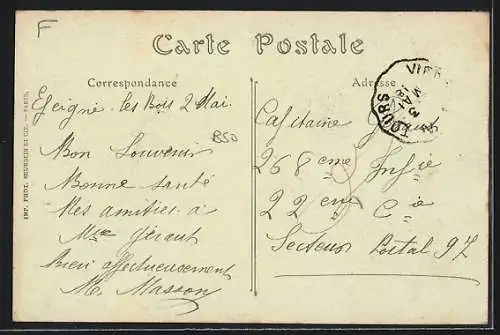 F
Carte Postale
Correspondance
Adresse
Leigné-les-Bois 2 Mai.
B50
Bon Souvenir
Bonne santé
Mes amitiés à
Mme Géraut
Bien affectueusement
M. Masson
Capitaine Géraut
268 eme Infie
22 eme Cie
Secteur Postal 97
TOURS
VIER
3
MAI
IMP. PHOT. NEURDEIN ET CIE. — PARIS.